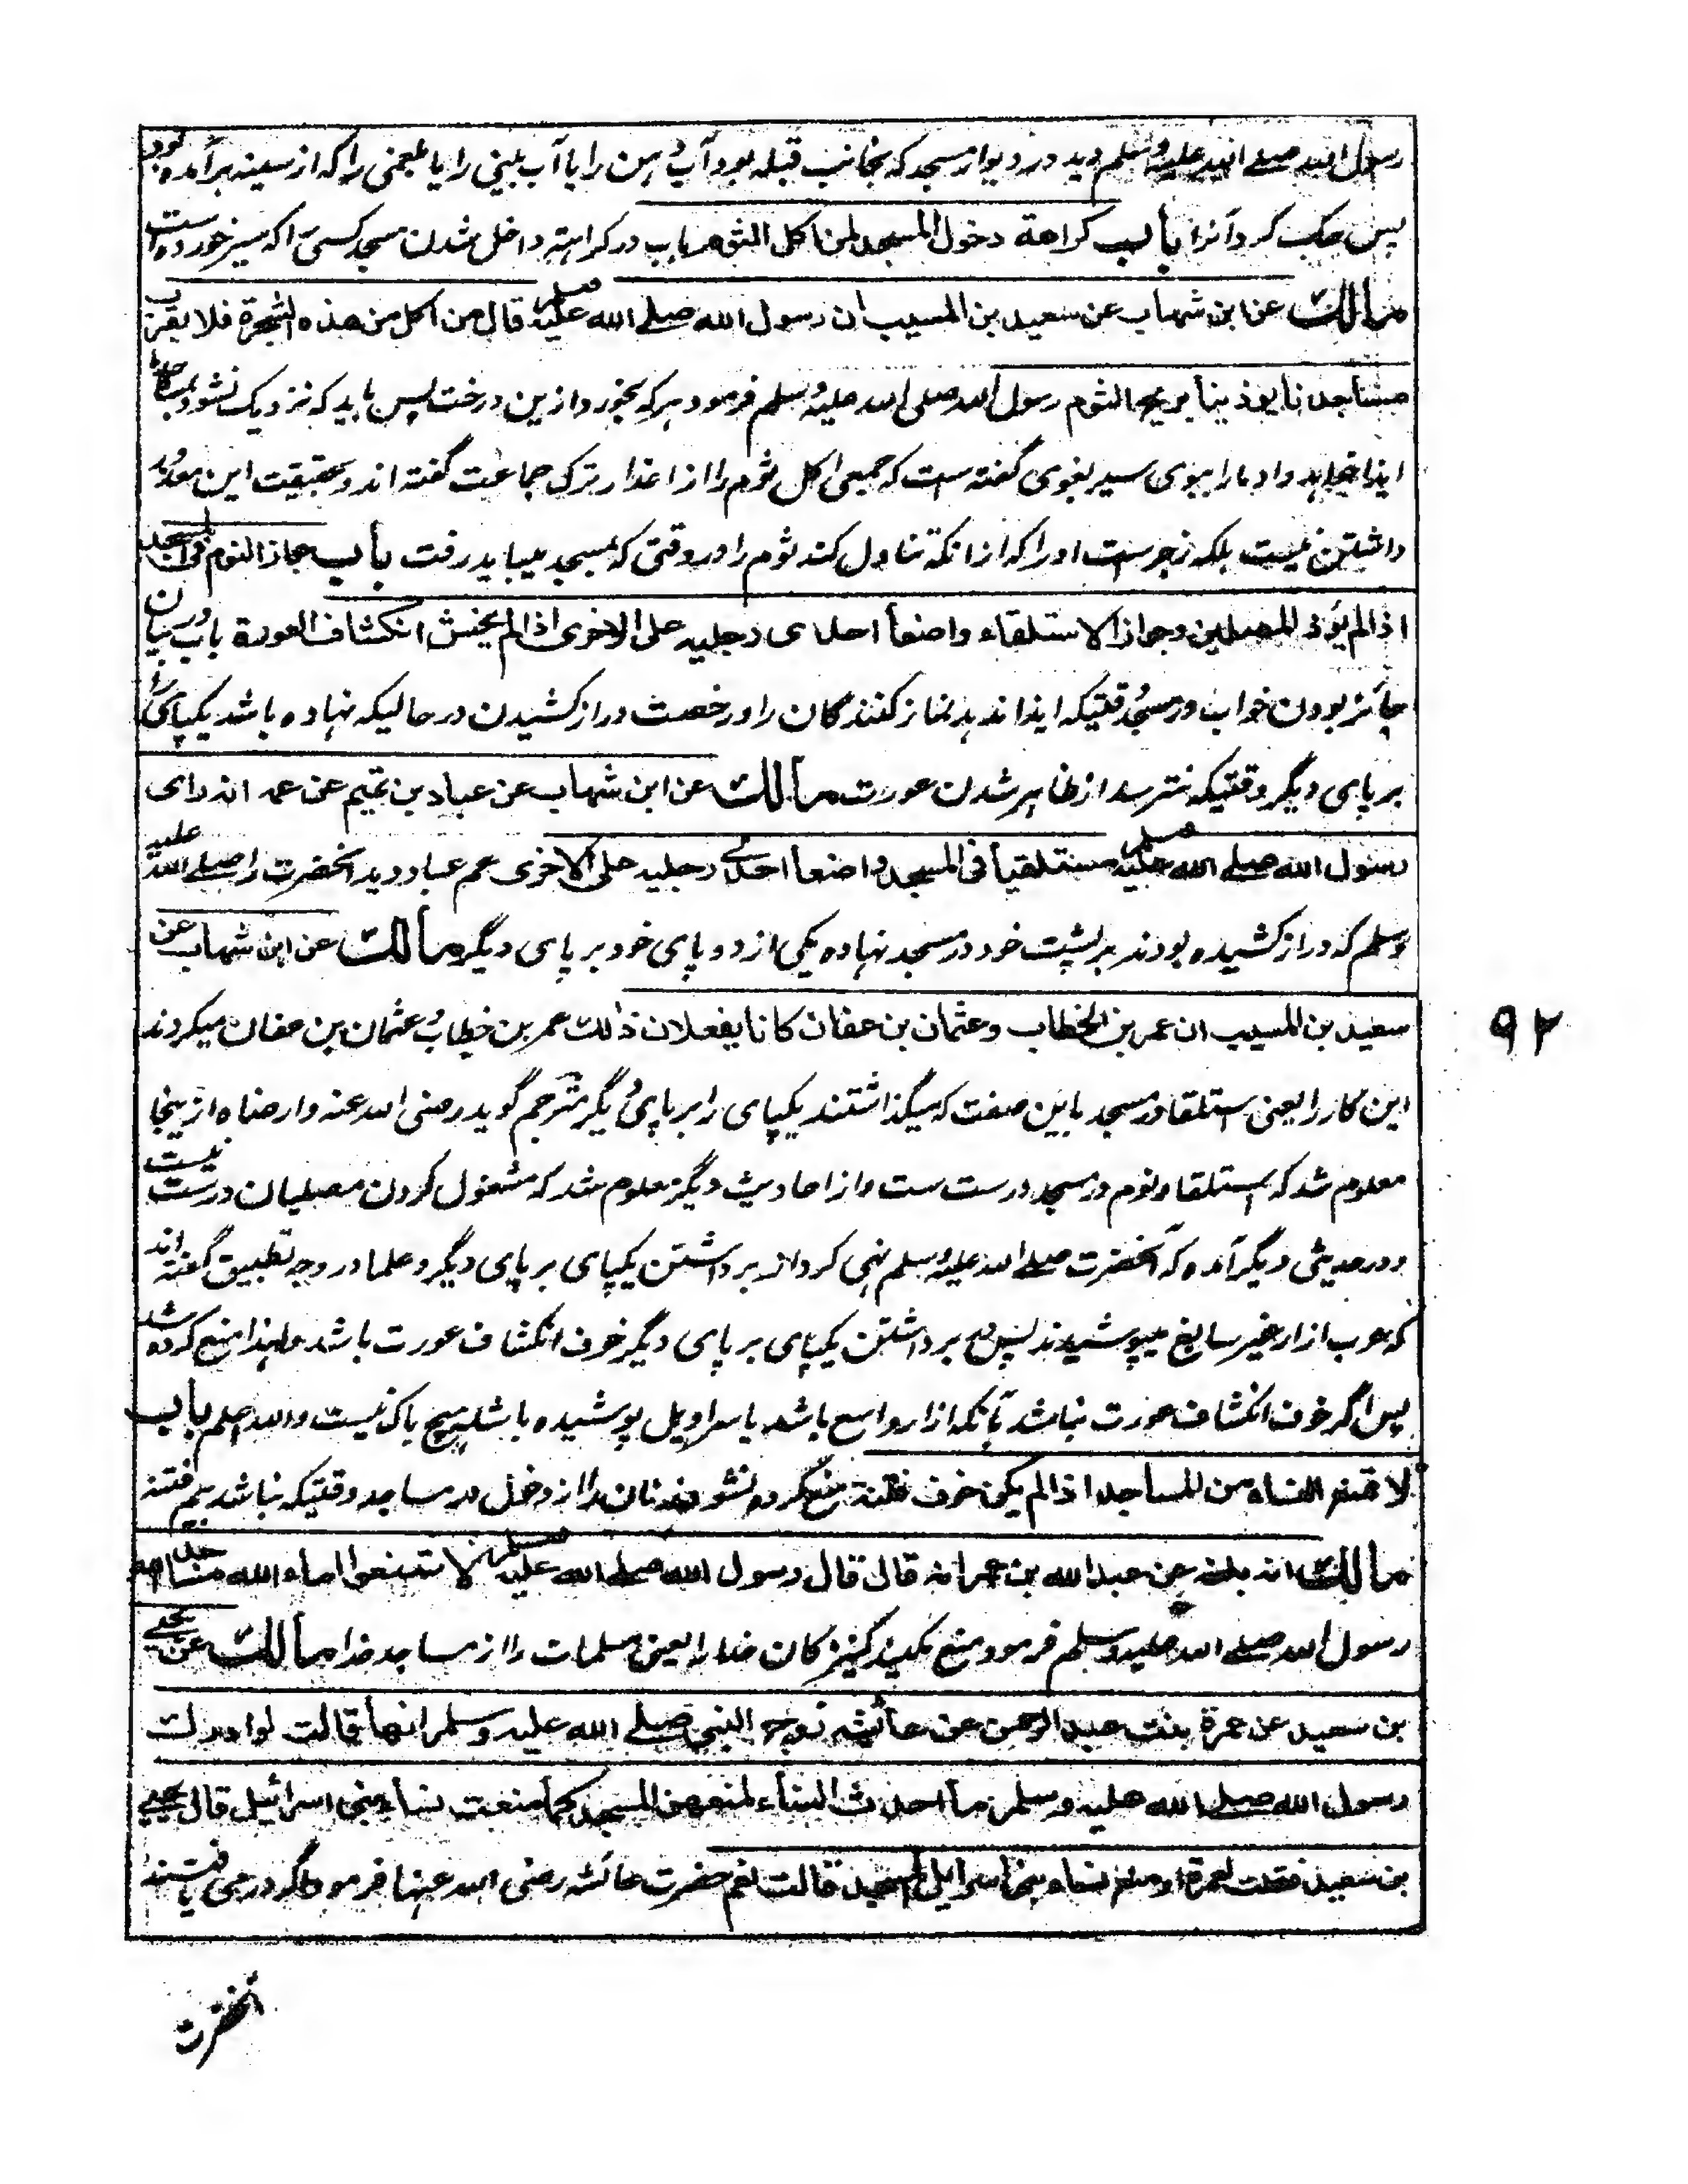 رسول الله صلے الله علیه وسلم دید در دیوار مسجد که بجانب قبله بود آب دهن را یا آب بینی را یا بلغمی را که از سینه برآمده بود
پس حک کرد آنرا باب كراهة دخول المسجد لمن اكل الثوم باب در کراهیته داخل شدن مسجد کسی را که سیر خورده است
مالك عن ابن شهاب عن سعيد بن المسيب ان رسول الله صلے الله عليه وسلم قال من اكل من هذه الشجرة فلا يقرب
مساجدنا يوذينا بريح الثوم رسول الله صلی الله علیه وسلم فرمود هرکه بخورد ازین درخت پس باید که نزدیک نشود بمساجد ما
ایذا میدهد ما را ببوی سیر بغوی گفته ست که جمعی اکل ثوم را از اعذار ترک جماعت گفته اند و حقیقت این معذور
داشتن نیست بلکه زجرست او را که از آنکه تناول کند ثوم را در وقتی که بمسجد میباید رفت باب جاز النوم فی المسجد
اذا لم يؤذ المصلين وجواز الاستلقاء واضعا احدى رجليه على الاخرى اذا لم يخش انكشاف العورة باب در بیان
جائز بودن خواب در مسجد وقتیکه ایذا ندهد نماز کنندگان را و رخصت دراز کشیدن در حالیکه نهاده باشد یکپای را
بر پای دیگر وقتیکه نترسد از ظاهر شدن عورت مالك عن ابن شهاب عن عباد بن تميم عن عمه انه رای
رسول الله صلے الله عليه وسلم مستلقيا فی المسجد واضعا احدے رجليه على الاخرى عم عباد دید آنحضرت را صلے الله علیه
وسلم که دراز کشیده بودند بر پشت خود در مسجد نهاده یکی از دو پای خود بر پای دیگر مالك عن ابن شهاب عن
سعيد بن المسيب ان عمر بن الخطاب وعثمان بن عفان كانا يفعلان ذالك عمر بن خطاب و عثمان بن عفان میکردند
این کار را یعنی استلقا در مسجد باین صفت که میگذاشتند یکپای را بر پای دیگر مترجم گوید رضی الله عنه وارضاه از ینجا
معلوم شد که استلقا و نوم در مسجد درست ست و از احادیث دیگر معلوم شد که مشغول کردن مصلیان درست نیست
و در حدیثی دیگر آمده که آنحضرت صلے الله علیه وسلم نهی کرد از برداشتن یکپای بر پای دیگر و علما در وجه تطبیق گفته اند
که عرب ازار غیر سابغ میپوشیدند پس در برداشتن یکپای بر پای دیگر خوف انکشاف عورت باشد ولهذا منع کرده شد
پس اگر خوف انکشاف عورت نباشد بآنکه ازار واسع باشد یا سراویل پوشیده باشد هیچ باک نیست والله اعلم باب
لا تمنع النساء من المساجد اذا لم يكن خوف فتنة منع کرده نشوند زنان را از دخول در مساجد وقتیکه نباشد بیم فتنه
مالك انه بلغه عن عبد الله بن عمر انه قال قال رسول الله صلے الله عليه وسلم لا تمنعوا اماء الله مساجد الله
رسول الله صلے الله علیه وسلم فرمود منع مکنید کنیزکان خدا را یعنی مسلمات را از مساجد خدا مالك عن يحيے
بن سعيد عن عمرة بنت عبد الرحمن عن عائشه زوج النبی صلے الله عليه وسلم انها قالت لو ادرك
رسول الله صلے الله عليه وسلم ما احدث النساء لمنعهن المسجد كما منعت نساء بنی اسرائيل قال يحيے
بن سعيد فقلت لعمرة اومنع نساء بنی اسرائیل المسجد قالت نعم حضرت عائشه رضی الله عنها فرمود اگر درمی یافتند
۹۲
آنحضرت